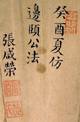 癸酉夏仿
邊頤公法
張盛榮